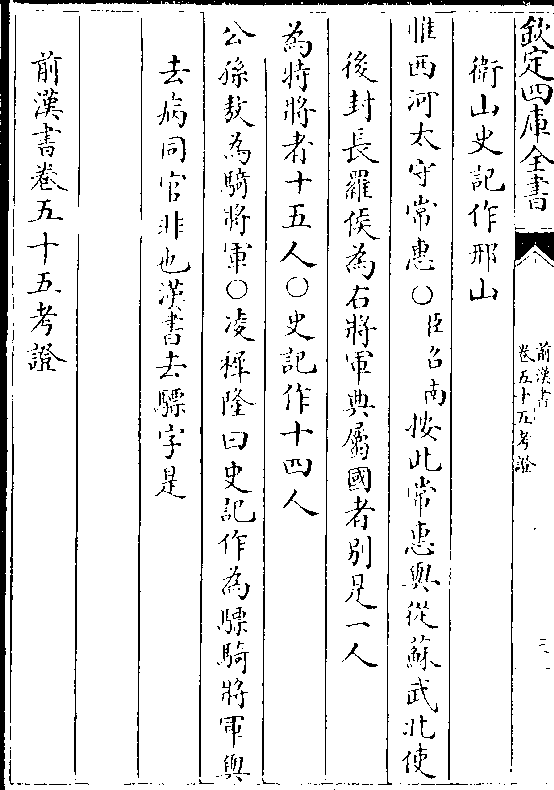 欽定四庫全書
前漢書
卷五十五考證
衛山史記作邢山
惟西河太守常惠○臣召南按此常惠與從蘇武北使
後封長羅侯為右將軍典屬國者別是一人
為特將者十五人○史記作十四人
公孫敖為騎將軍○凌稺隆曰史記作為驃騎將軍與
去病同官非也漢書去驃字是
前漢書卷五十五考證